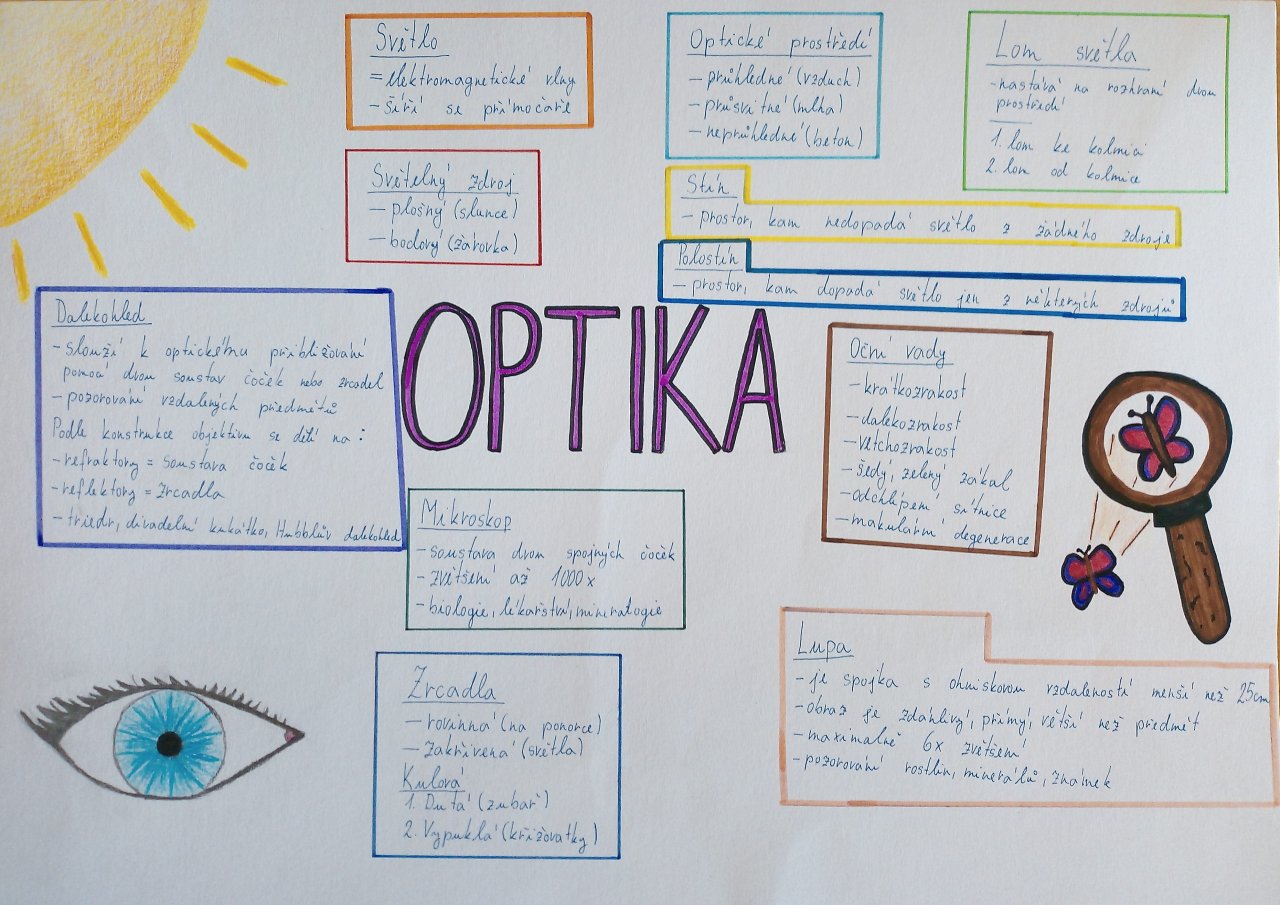 Světlo
= elektromagnetické vlny
- šíří se přímočaře
Světelný zdroj
- plošný (slunce)
- bodový (žárovka)
Optické prostředí
- průhledné (vzduch)
- průsvitné (mlha)
- neprůhledné (beton)
Lom světla
- nastává na rozhraní dvou
prostředí
1. lom ke kolmici
2. lom od kolmice
Stín
- prostor, kam nedopadá světlo z žádného zdroje
Polostín
- prostor, kam dopadá světlo jen z některých zdrojů
OPTIKA
Dalekohled
- slouží k optickému přibližování
pomocí dvou soustav čoček nebo zrcadel
- pozorování vzdálených předmětů
Podle konstrukce objektivu se dělí na:
- refraktory = soustava čoček
- reflektory = zrcadla
- triedr, divadelní kukátko, Hubblův dalekohled
Oční vady
- krátkozrakost
- dalekozrakost
- vetchozrakost
- šedý, zelený zákal
- odchlípení sítnice
- makulární degenerace
Mikroskop
- soustava dvou spojných čoček
- zvětšení až 1000x
- biologie, lékařství, mineralogie
Zrcadla
- rovinná (na ponorce)
- zakřivená (světla)
Kulová
1. Dutá (zubař)
2. Vypuklá (křižovatky)
Lupa
- je spojka s ohniskovou vzdáleností menší než 25cm
- obraz je zdánlivý, přímý, větší než předmět
- maximálně 6x zvětšení
- pozorování rostlin, minerálů, známek